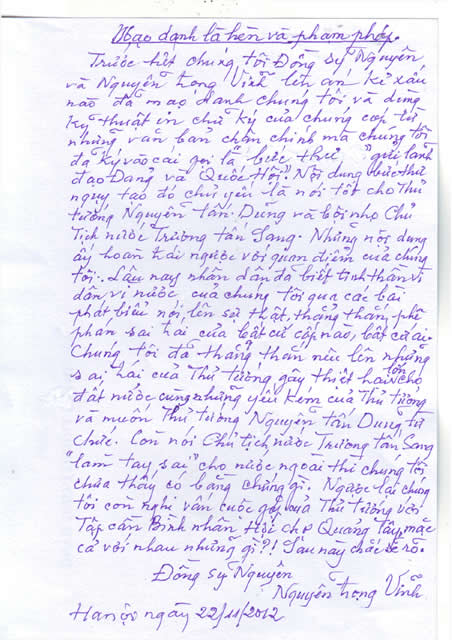 Mạo danh là hèn và phạm pháp.
Trước hết chúng tôi Đồng Sỹ Nguyên,
và Nguyễn Trọng Vĩnh lên án kẻ xấu
nào đã mạo danh chúng tôi, và dùng
kỹ thuật in chữ ký của chúng cop từ
những văn bản chân chính mà chúng tôi
đã ký vào cái gọi là bức thư "gửi lãnh
đạo Đảng và Quốc Hội". Nội dung bức thư
ngụy tạo đó chủ yếu là nói tốt cho Thủ
tướng Nguyễn Tấn Dũng và bôi nhọ Chủ
Tịch nước Trương Tấn Sang. Những nội dung
ấy hoàn toàn trái ngược với quan điểm của chúng
tôi. Lâu nay nhân dân đã biết tinh thần vì
dân vì nước, của chúng tôi qua các bài
phát biểu nói lên sự thật, thẳng thắn, phê
phán sai trái của bất cứ cấp nào, bất cứ ai.
Chúng tôi đã thẳng thắn nêu lên những
sai trái của Thủ tướng gây thiệt hại lớn cho
đất nước cùng những yếu kém của Thủ tướng
và muốn Thủ tướng Nguyễn Tấn Dũng từ
chức. Còn nói Chủ tịch nước Trương Tấn Sang
"làm tay sai" cho nước ngoài thì chúng tôi
chưa thấy có bằng chứng gì. Ngược lại chúng
tôi còn nghi vấn cuộc gặp của Thủ tướng với
Tập Cận Bình nhân Hội chợ Quảng Tây, mặc
cả với nhau những gì?! Sau này chắc sẽ rõ.
Đồng Sỹ Nguyên
Nguyễn Trọng Vĩnh
Hà nội ngày 22/11/2012